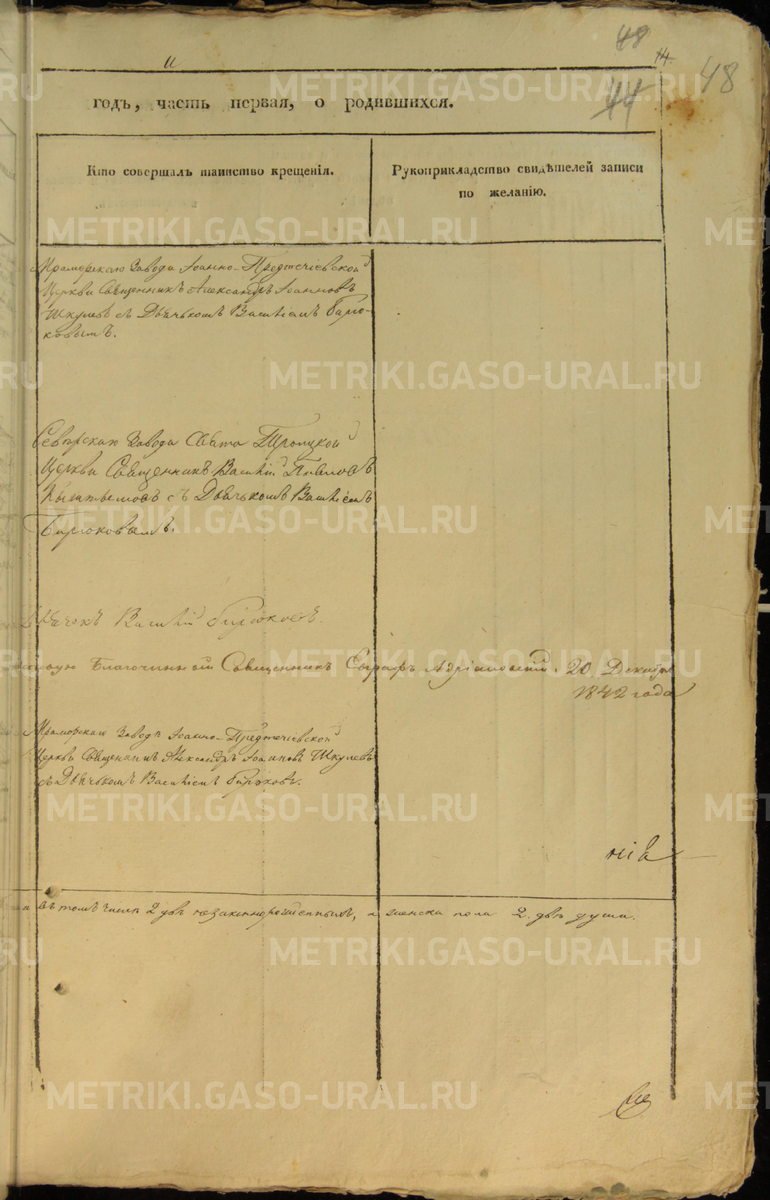 48
14
и
48
44
годъ, часть первая, о родившихся.
Кто совершалъ таинство крещенія.
Рукоприкладство свидѣтелей записи
по желанію.
Мраморскаго Завода Іоанно-Предтечевской
Церкви Священникъ Александръ Іоанновъ
Шкулевъ съ Дьячькомъ Василіемъ Бирю-
ковымъ.
Северскаго Завода Свято Троицкой
Церкви Священникъ Василій Павловъ
съ Дьячькомъ Василіемъ
Бирюковымъ.
Дьячекъ Василій Бирюковъ.
Благочинный Священникъ 20. Декабря
1842 года
Мраморскаго Завода Іоанно-Предтечевской
Церкви Священникъ Александръ Іоанновъ Шкулевъ
съ Дьячькомъ Василіемъ Бирюковъ.
въ томъ числѣ 2 двѣ незаконнорожденныхъ, а женска пола 2. двѣ души.
METRIKI.GASO-URAL.RU